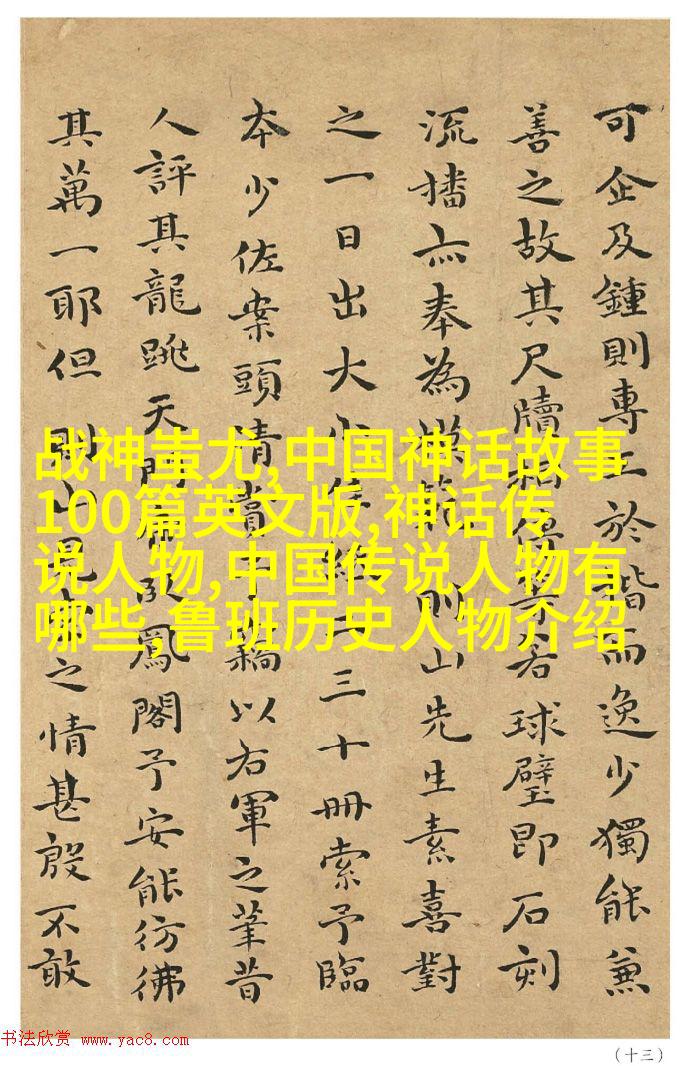 可企及鍾則專工於楷而逸少獨能兼
善之故其尺牘相傳若球璧即石刻
流播亦奉為模範則山先生素喜對
之一日出大小紙二三十冊索予臨
本少佐案頭清賞予竊以右軍之筆昔
人評其龍跳天門虎臥鳳閣予安能彷彿
其萬一耶但則山見索之情甚殷不敢
战神蚩尤,中国神话故事
100篇英文版,神话传
说人物,中国传说人物有
哪些,鲁班历史人物介绍
书法欣赏 www.yac8.com
（十三）